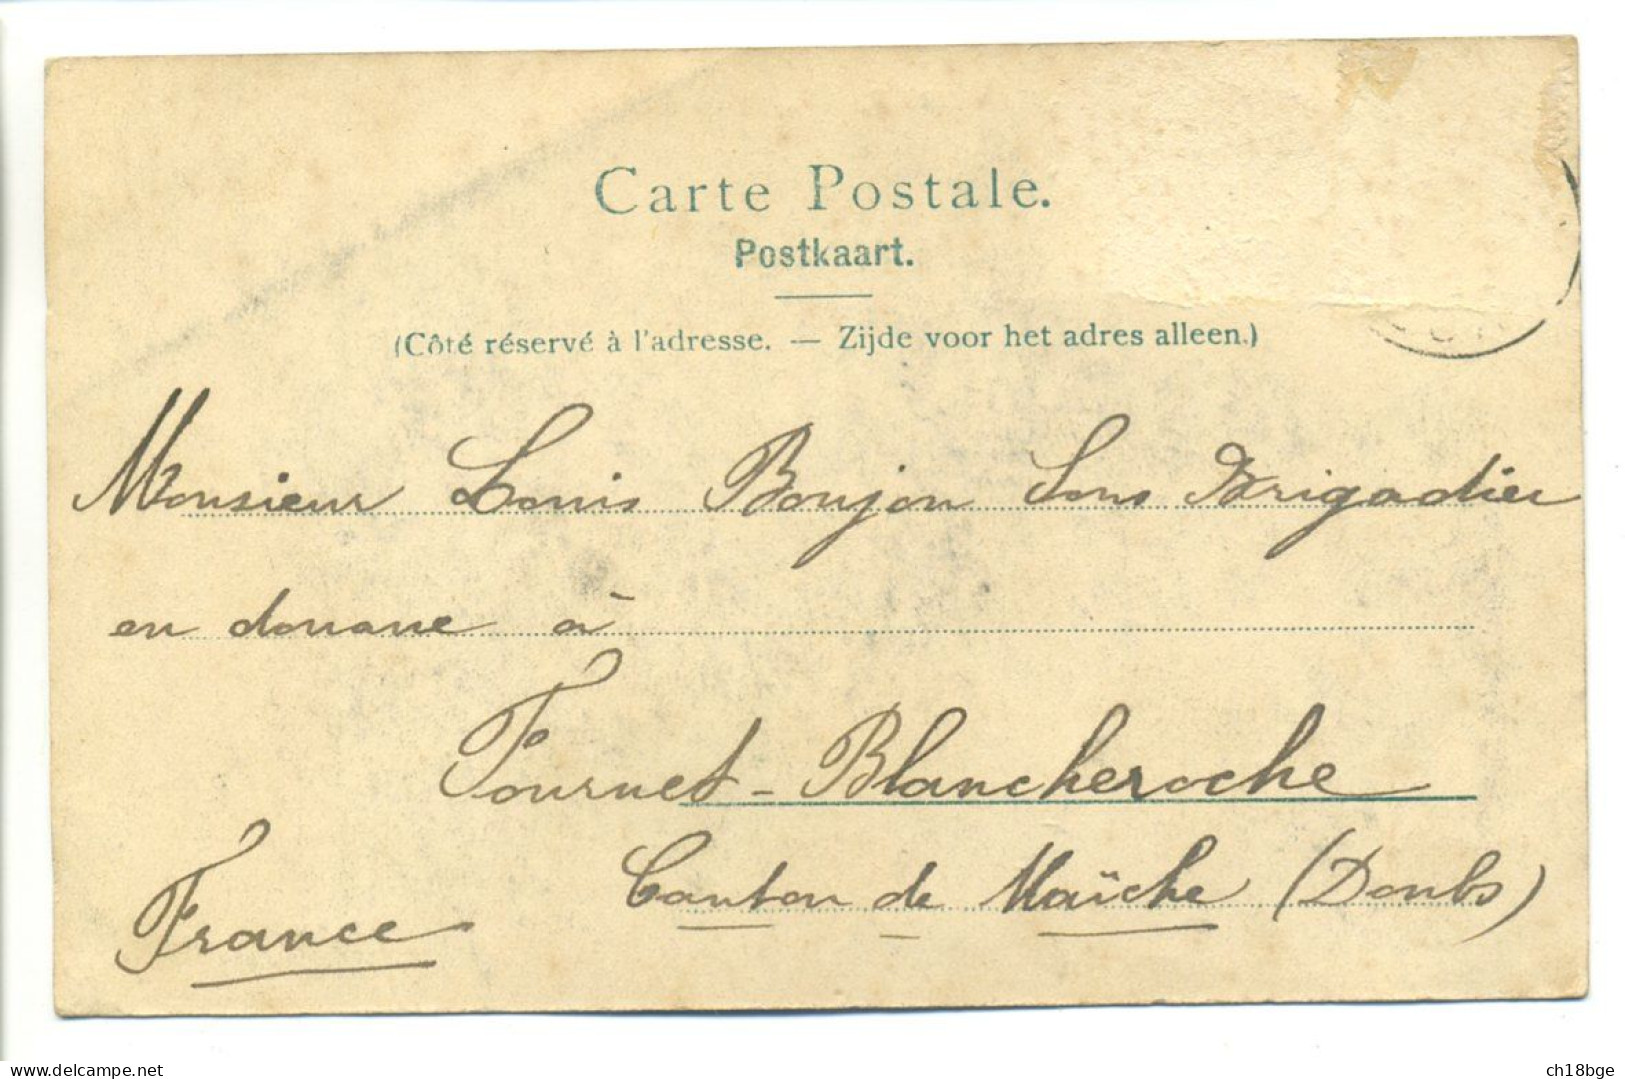 Carte Postale.
Postkaart.
(Côté réservé à l'adresse. — Zijde voor het adres alleen.)
Monsieur Louis Boujon Sous Brigadier
en douane à
Fournet-Blancheroche
Canton de Maîche (Doubs)
France
www.delcampe.net
ch18bge